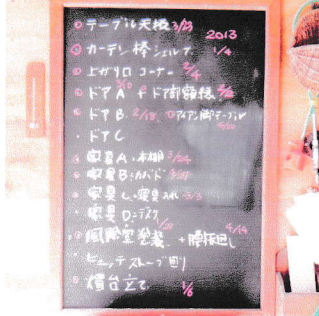 テーブル天板 3/23
2013
カーテン棒シェルフ 1/4
上がり口コーナー 2/4
ドアA 3/10 ドア額縁
ドアB 2/18 アイアン脚テーブル
ドアC
家具A:本棚 3/24
家具B:カバド
家具C:寝具入れ 3/3
家具D:デスク
風除室塗装 +腰板廻し 4/14
ヒュッテストーブ廻り
燭台立て 1/6